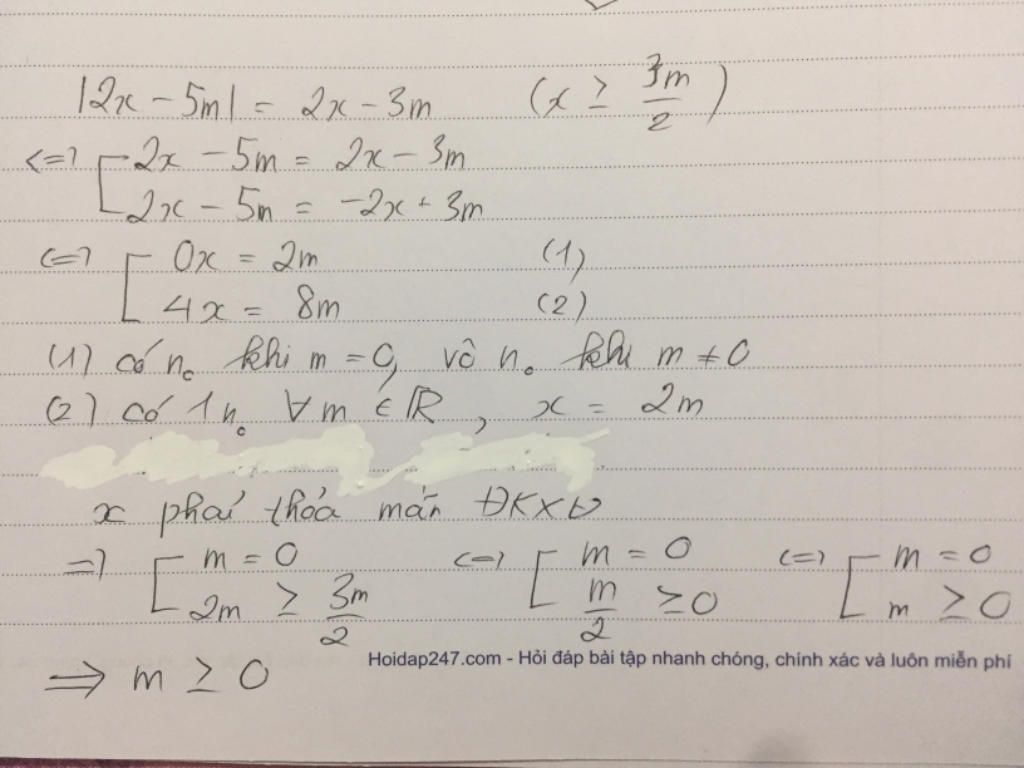 |2x - 5m| = 2x - 3m (x ≥ 3m/2)
<=> [ 2x - 5m = 2x - 3m
2x - 5m = -2x + 3m
<=> [ 0x = 2m (1)
4x = 8m (2)
(1) có n₀ khi m = 0, vô n₀ khi m ≠ 0
(2) có 1 n₀ ∀m ∈ ℝ, x = 2m
x phải thỏa mãn ĐKXĐ
=> [ m = 0 <=> [ m = 0 <=> [ m = 0
2m ≥ 3m/2 m/2 ≥ 0 m ≥ 0
Hoidap247.com - Hỏi đáp bài tập nhanh chóng, chính xác và luôn miễn phí
=> m ≥ 0